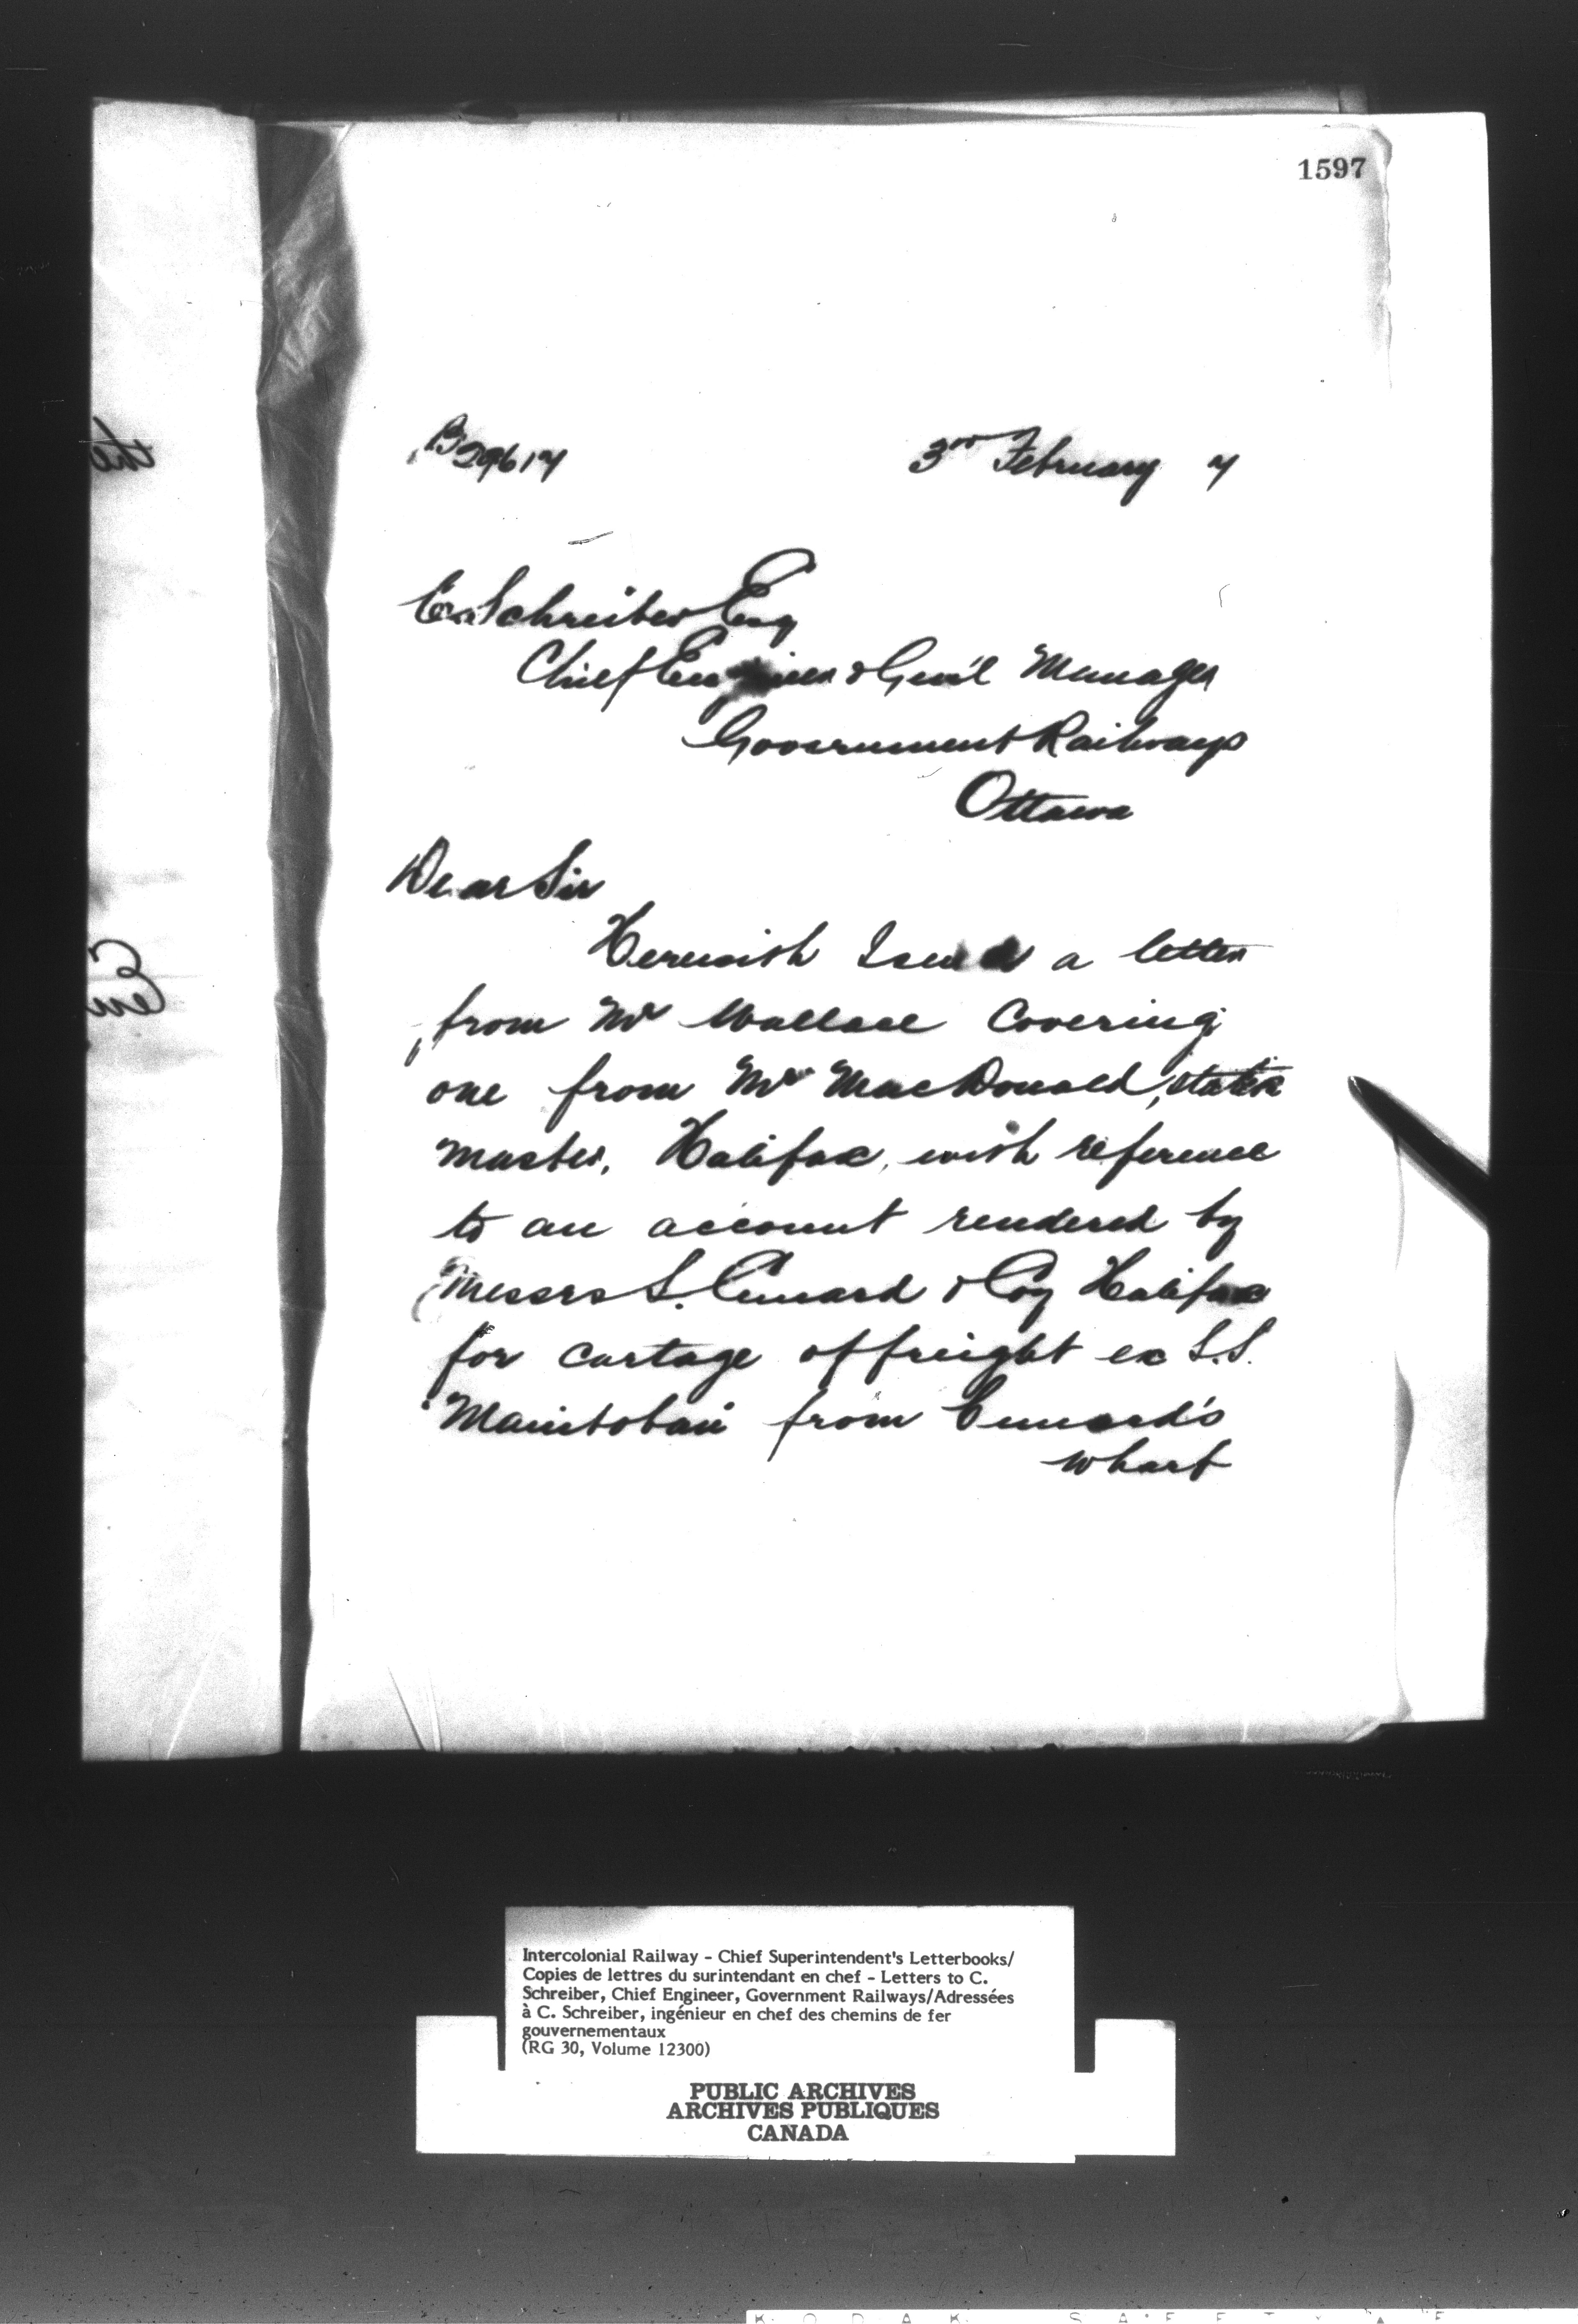 1597
B29617
3rd February 7
C. Schreiber Esq
Chief Engineer & Gen'l Manager
Government Railways
Ottawa
Dear Sir
Herewith I send a letter
from Mr Wallace Covering
one from Mr MacDonald, station
master, Halifax, with reference
to an account rendered by
Messrs S. Cunard & Coy Halifax
for cartage of freight ex S.S.
"Manitoban" from Cunard's
wharf
the
En
Intercolonial Railway - Chief Superintendent's Letterbooks/
Copies de lettres du surintendant en chef - Letters to C.
Schreiber, Chief Engineer, Government Railways/Adressées
à C. Schreiber, ingénieur en chef des chemins de fer
gouvernementaux
(RG 30, Volume 12300)
PUBLIC ARCHIVES
ARCHIVES PUBLIQUES
CANADA
KODAK SAFETY